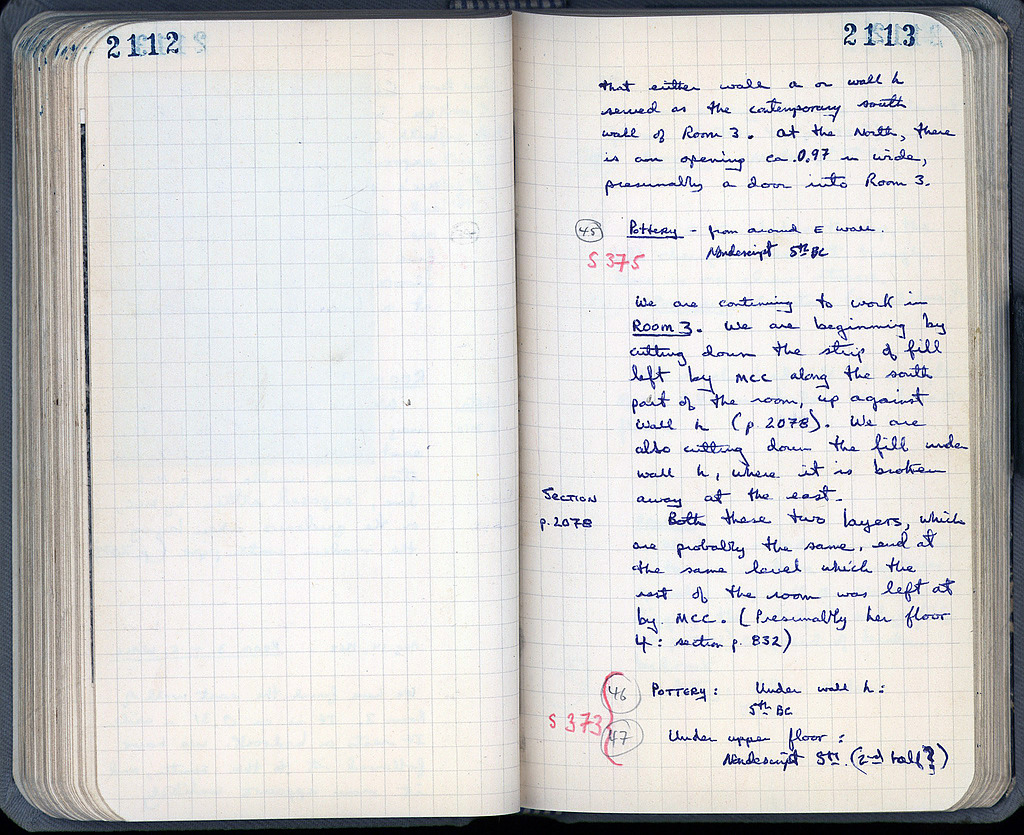 2112
2113
that either wall a or wall h
served as the contemporary south
wall of Room 3. At the North, there
is an opening ca. 0.97 m wide,
presumably a door into Room 3.
45 Pottery - from around E wall.
S 375 Nondescript 5th BC
We are continuing to work in
Room 3. We are beginning by
cutting down the strip of fill
left by MCC along the south
part of the room, up against
wall h (p. 2078). We are
also cutting down the fill under
wall h, where it is broken
away at the east.
Section
p. 2078
Both these two layers, which
are probably the same, end at
the same level which the
rest of the room was left at
by MCC. (Presumably her floor
4: section p. 832)
46 Pottery: Under wall h:
5th BC
S 373
47 Under upper floor:
Nondescript 5th. (2nd half?)